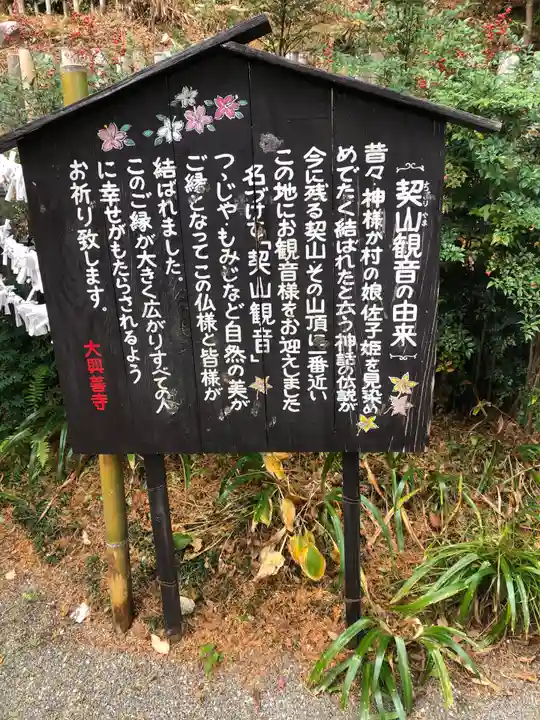 契山観音の由来
昔々神様が村の娘佐子姫を見染め
めでたく結ばれたと云う神話の仏説が
今に残る契山その山頂に一番近い
この地にお観音様をお迎えしました
名づけて「契山観音」
つゝじやもみじなど自然の美が
ご縁となってこの仏様と皆様が
結ばれました。
このご縁が大きく広がりすべての人
に幸せがもたらされるよう
お祈り致します。
大興善寺